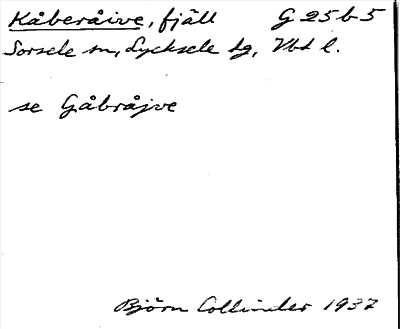 Kåberåive, fjäll G 25 b 5
Sorsele sn, Lycksele lg, Vbt l.
se Gåbråjve
Björn Collinder 1937